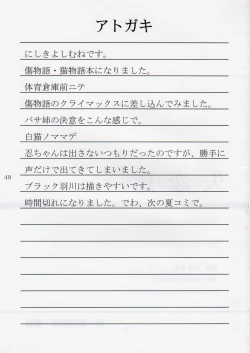 アトガキ
にしきよしむねです。
傷物語・猫物語本になりました。
体育倉庫前ニテ
傷物語のクライマックスに差し込んでみました。
バサ姉の決意をこんな感じで。
白猫ノママデ
忍ちゃんは出さないつもりだったのですが、勝手に
声だけで出てきてしまいました。
ブラック羽川は描きやすいです。
時間切れになりました。でわ、次の夏コミで。
49